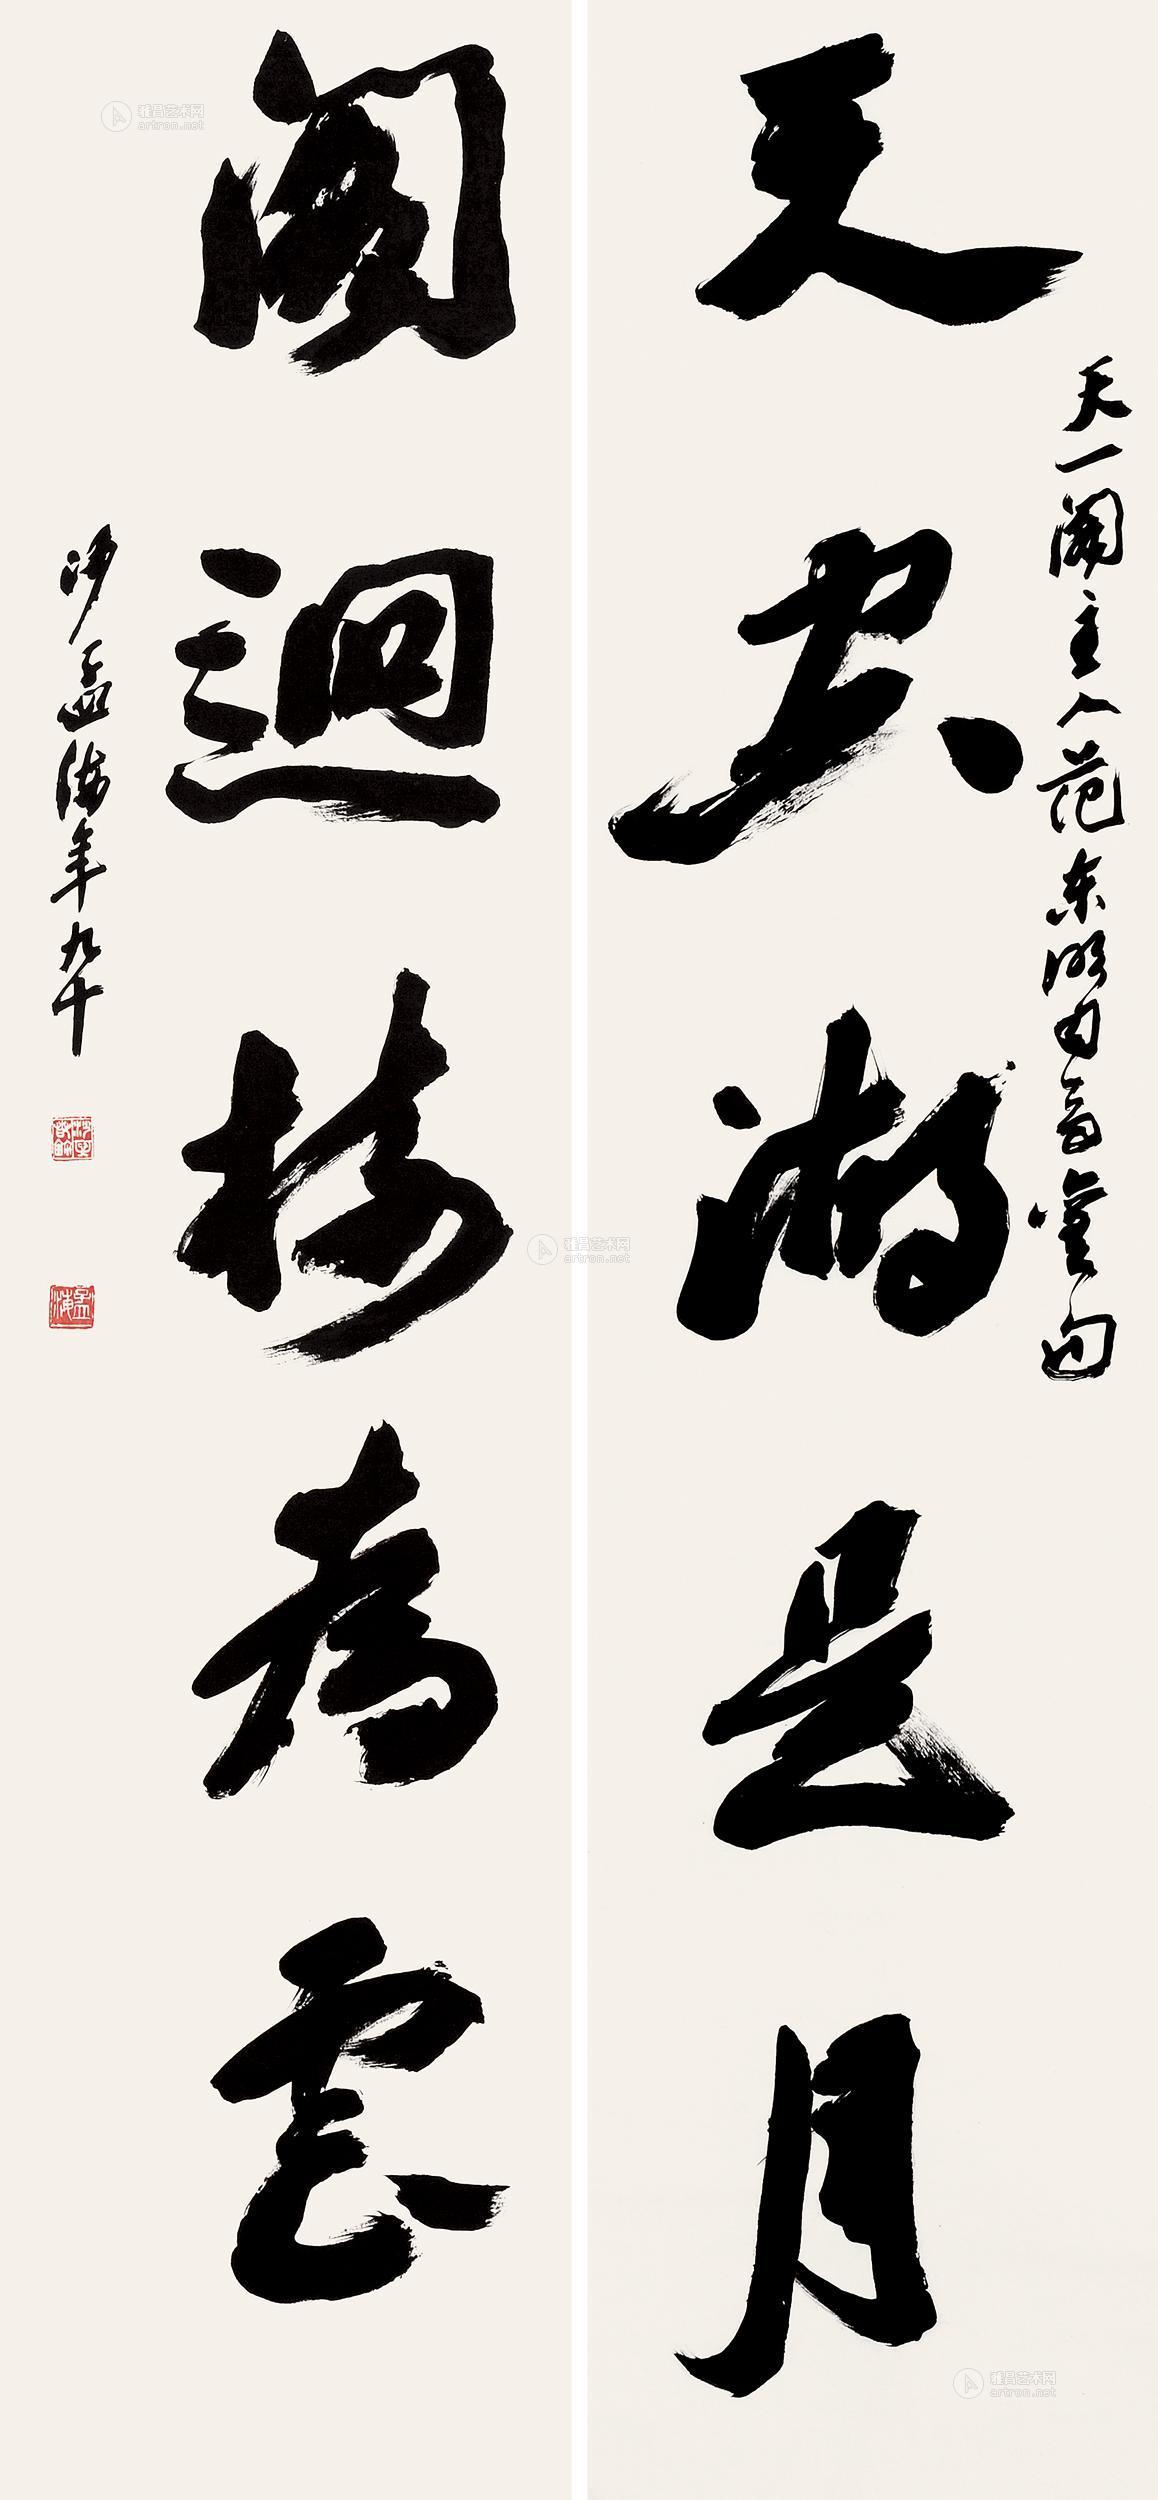 天尽湖是月
天一阁主人范东明句
阁迥树为云
沙孟海年九十
孟海
雅昌艺术网
artron.net
雅昌艺术网
artron.net
雅昌艺术网
artron.net